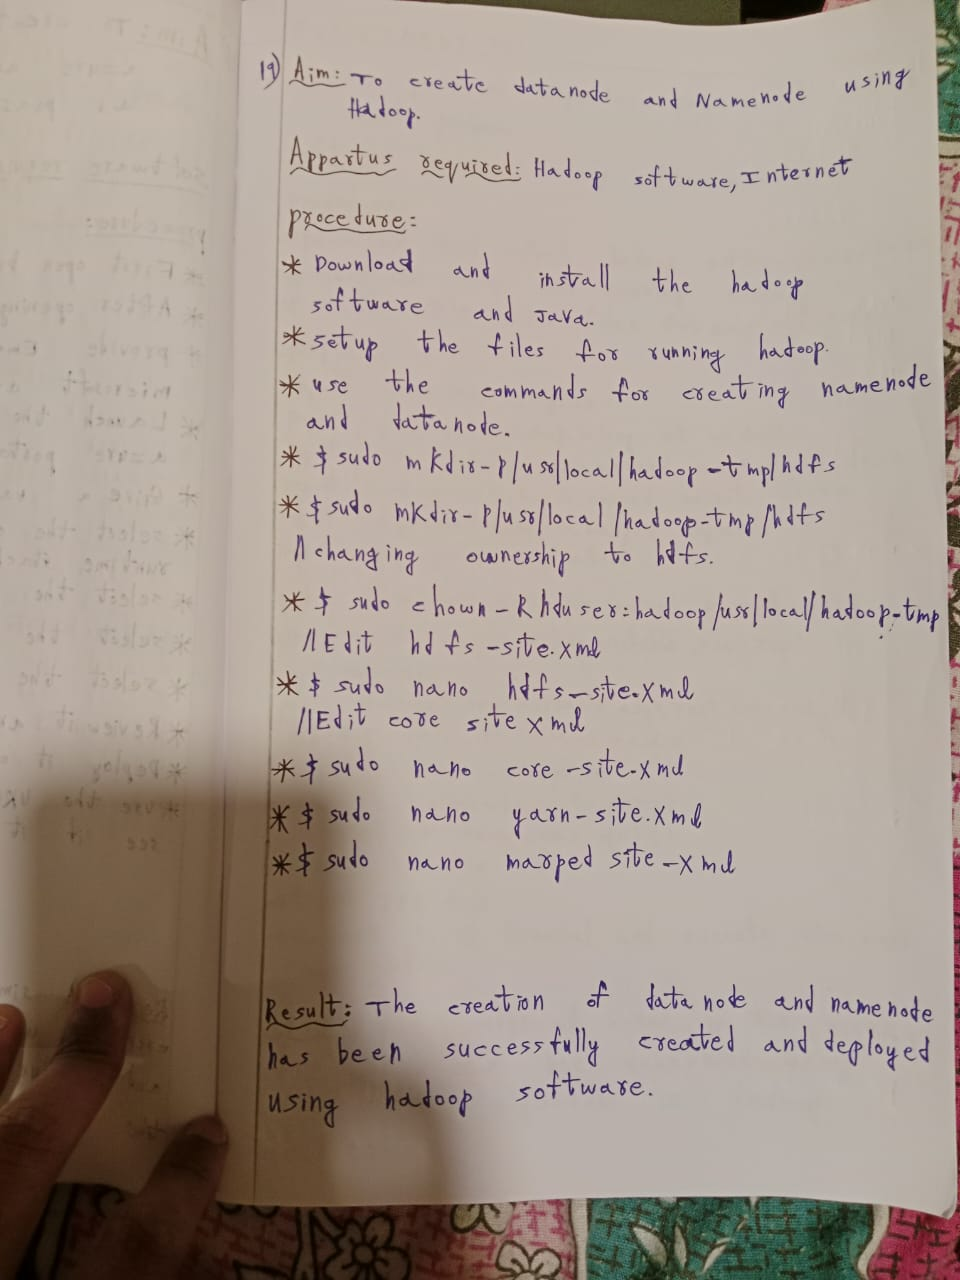 19) Aim: To create datanode and Namenode using
Hadoop.
Appartus required: Hadoop software, Internet
procedure:
* Download and install the hadoop
software and Java.
* setup the files for running hadoop.
* use the commands for creating namenode
and datanode.
* $ sudo mkdir-P/usr/local/hadoop-tmp/hdfs
* $ sudo mkdir-P/usr/local/hadoop-tmp/hdfs
// changing ownership to hdfs.
* $ sudo chown -R hduser:hadoop/usr/local/hadoop-tmp
// Edit hdfs-site.xml
* $ sudo nano hdfs-site.xml
//Edit core site xml
* $ sudo nano core-site.xml
* $ sudo nano yarn-site.xml
* $ sudo nano marped site-xml
Result: The creation of datanode and namenode
has been successfully created and deployed
using hadoop software.